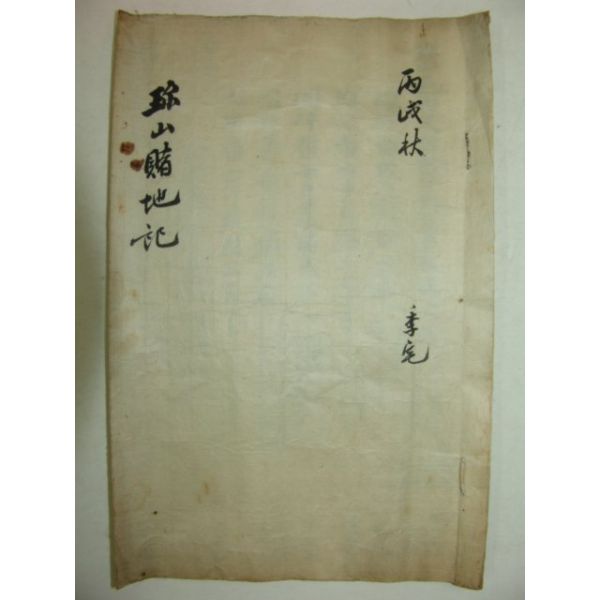 丙戌秋
季宅
珎山賭地記